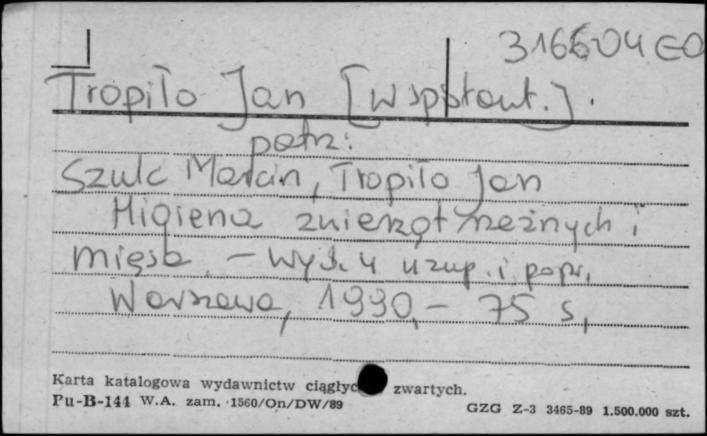 316604 GO
Tropiło Jan [współaut.].
patrz:
Szulc Marcin, Tropiło Jan
Higiena zwierząt rzeźnych i
mięsa. – Wyd. 4 uzup. i popr.
Warszawa, 1990. – 75 s.
Karta katalogowa wydawnictw ciągłyc zwartych.
Pu-B-144 W.A. zam. 1560/On/DW/89
GZG Z-3 3465-89 1.500.000 szt.